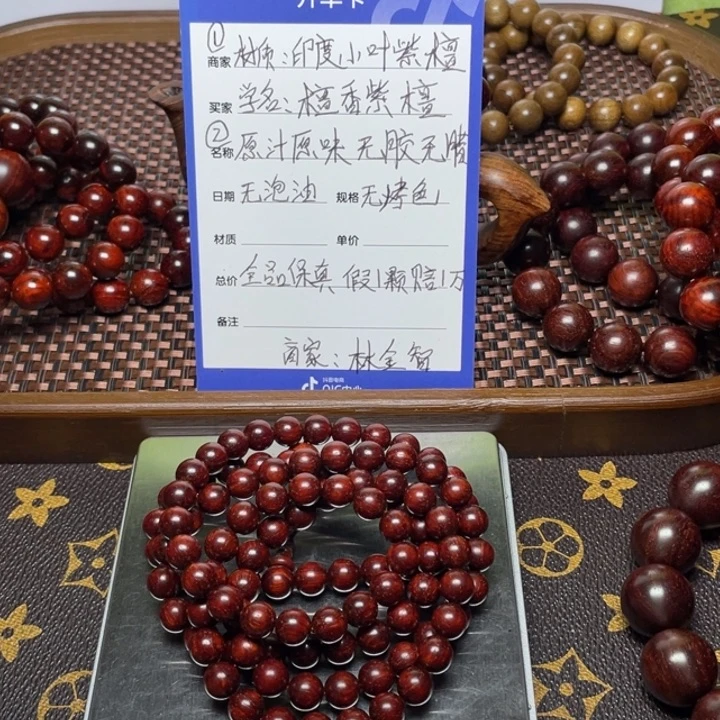 开单卡
①
商家 材质：印度小叶紫檀
买家 学名：檀香紫檀
②
名称 原汁原味 无胶无腊
日期 无泡油 规格 无烤色
材质 单价
总价 全品保真 假1颗赔1万
备注
商家：林全智
抖音电商
QIC中心